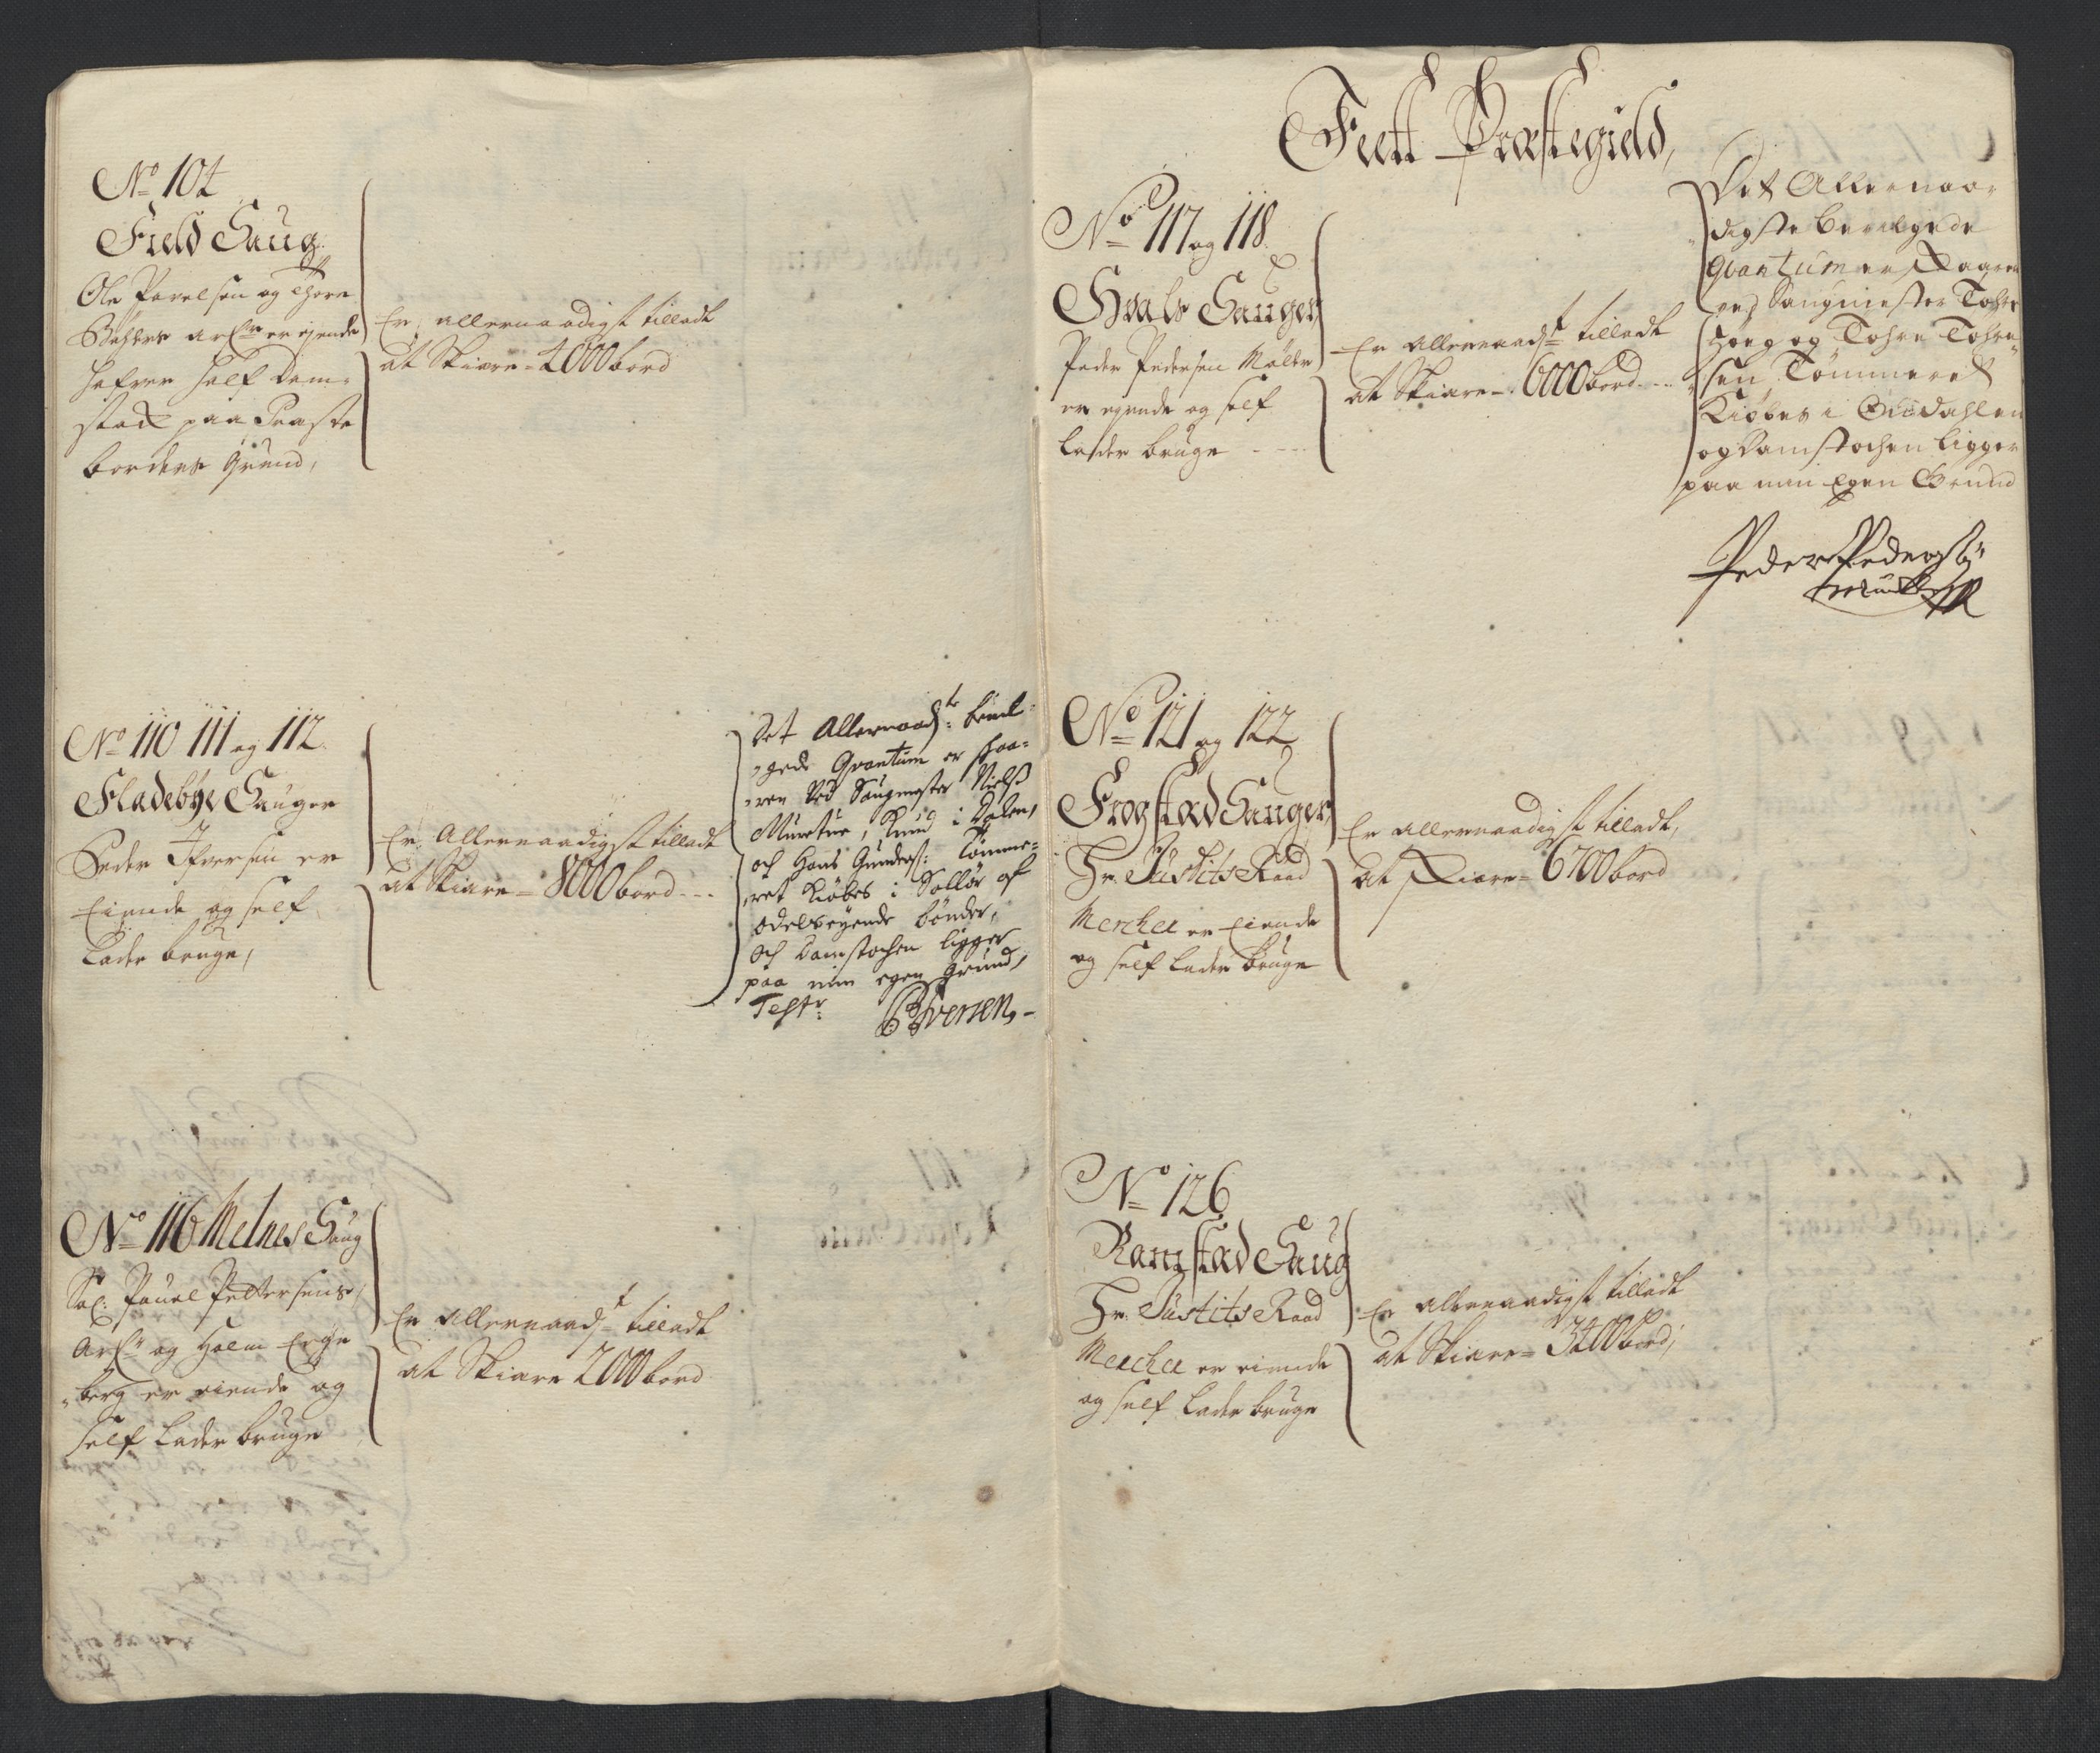 No 104
Field Saug
Ole Povelsen og Thore
er ejende
hafver self Dam-
stock paa Præste
bordens Grund,
Er allernaadigst tilladt
at Skiære = 4000 bord
No 110 111 og 112
Fladebÿe Sauger
Peder Ifversen er
Eiende og self
Lader bruge,
Er Allernaadigst tilladt
at Skiære = 8000 bord ---
Det Allernaadste bevil-
gede Qvantum er skaa-
ren ved Saugmester Nielß
Muretue, Knud i Dalen,
och Hans Gunders: Tømme-
ret Kiøbes i Solløer af
odelseyende bønder,
och Damstochen ligger
paa min egen grund,
Test:
PIversen,-
No 116 Melnes Saug
Sal: Pauel Pettersens
Arf: og Holm Enge
berg er eiende og
self Lader bruge
Er allernaadst tilladt
at Skiære 2000 bord
Feett Præstegield,
No 117 og 118
Hvals Sauger
Peder Pedersen Møller
er eyende og self
lader bruge ----
Er allernaadst tilladt
at Skiære = 6000 bord ---
Det Allernaa-
digste bevilgede
Qvantum er skaaren
ved Saugmester Tohre
og Tohre Tohre-
sen, Tømmeret
Kiøbes i Guldahlen
og Damstochen ligger
paa min Egen Grund
Peder Pedersen
Müller
No 121 og 122
Frogstad Sauger,
Hr. Justits Raad
Merchel er Eiende
og self lader bruge
Er allernaadigst tilladt,
at skiære = 6700 bord
No 126
Ramstad Saug
Hr. Justits Raad
Merchel er eiende
og self lader bruge
Er allernaadigst tilladt
at Skiære = 3400 bord,